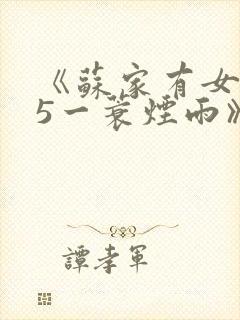 《蘇家有女
5一蓑煙雨》
譚孝軍